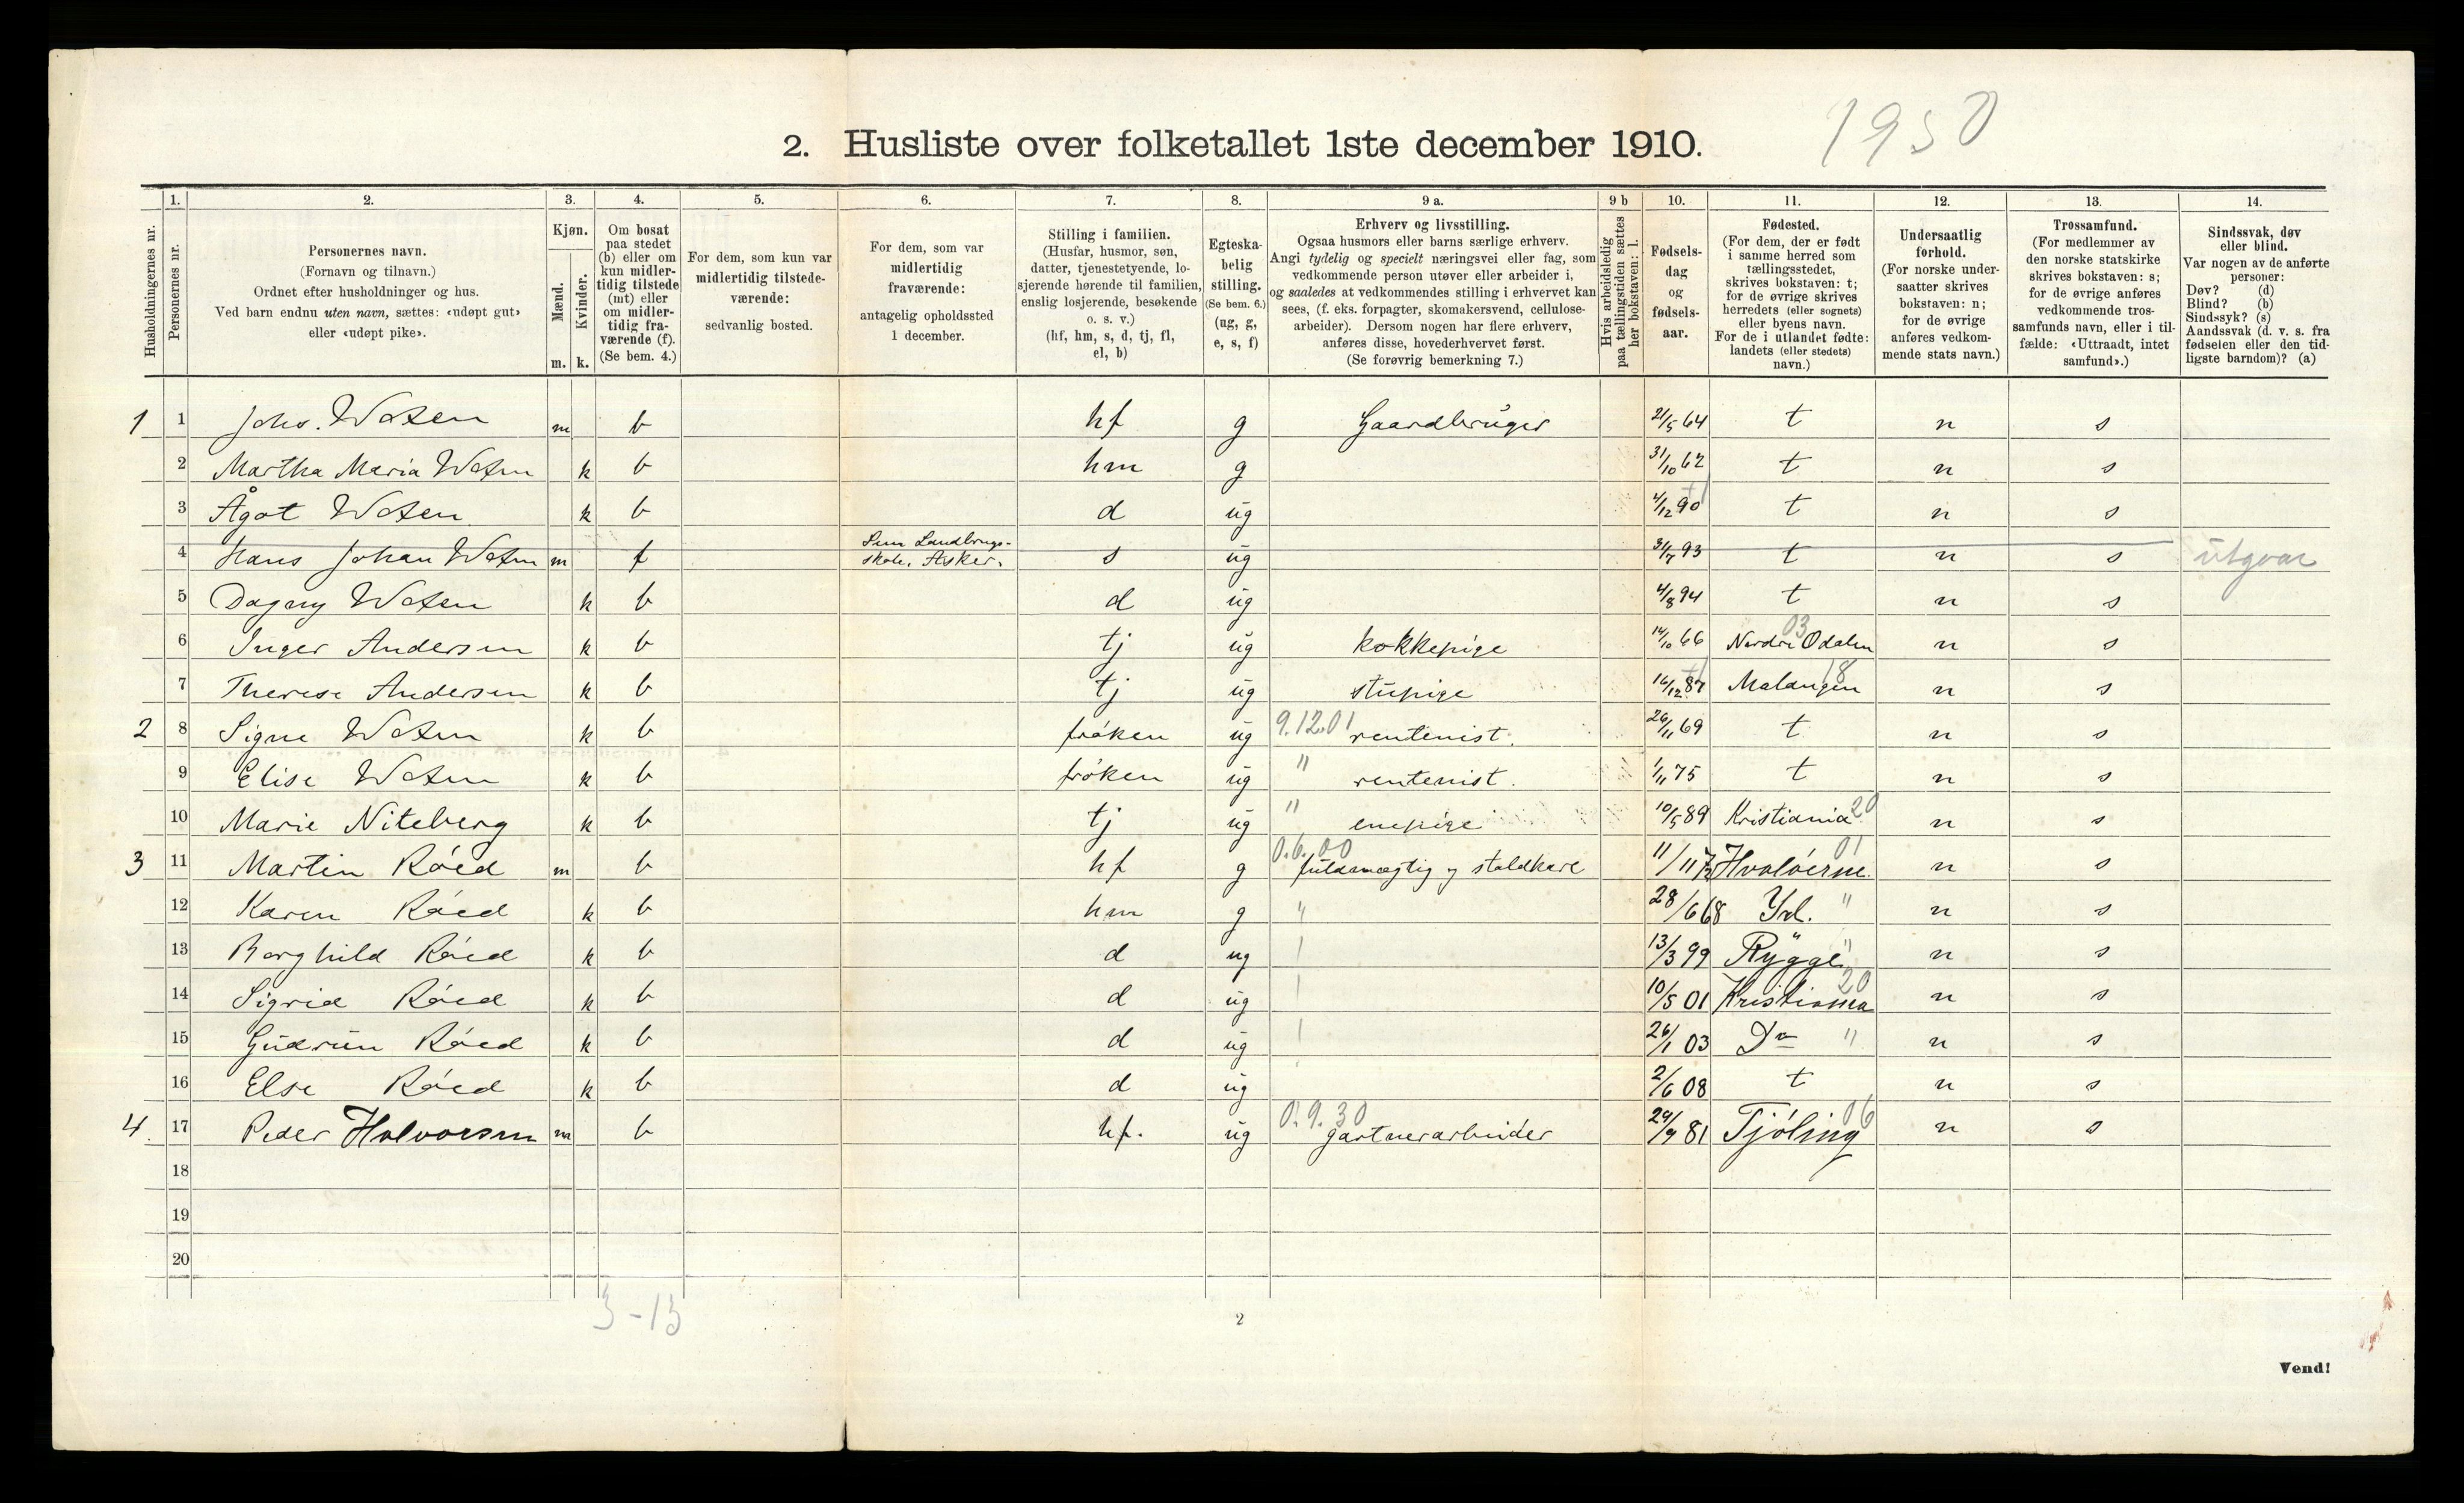 1950
2. Husliste over folketallet 1ste december 1910.
1. 2. 3. 4. 5. 6. 7. 8. 9 a. 9 b 10. 11. 12. 13. 14.
Husholdningernes nr.
Personernes nr.
Personernes navn.
(Fornavn og tilnavn.)
Ordnet efter husholdninger og hus.
Ved barn endnu uten navn, sættes: «udøpt gut»
eller «udøpt pike».
Kjøn.
Mænd.
Kvinder.
m. k.
Om bosat
paa stedet
(b) eller om
kun midler-
tidig tilstede
(mt) eller
om midler-
tidig fra-
værende (f).
(Se bem. 4.)
For dem, som kun var
midlertidig tilstede-
værende:
sedvanlig bosted.
For dem, som var
midlertidig
fraværende:
antagelig opholdssted
1 december.
Stilling i familien.
(Husfar, husmor, søn,
datter, tjenestetyende, lo-
sjerende hørende til familien,
enslig losjerende, besøkende
o. s. v.)
(hf, hm, s, d, tj, fl,
el, b)
Egteska-
belig
stilling.
(Se bem. 6.)
(ug, g,
e, s, f)
Erhverv og livsstilling.
Ogsaa husmors eller barns særlige erhverv.
Angi tydelig og specielt næringsvei eller fag, som
vedkommende person utøver eller arbeider i,
og saaledes at vedkommendes stilling i erhvervet kan
sees, (f. eks. forpagter, skomakersvend, cellulose-
arbeider). Dersom nogen har flere erhverv,
anføres disse, hovederhvervet først.
(Se forøvrig bemerkning 7.)
Hvis arbeidsledig
paa tællingstiden sættes
her bokstaven: l.
Fødsels-
dag
og
fødsels-
aar.
Fødested.
(For dem, der er født
i samme herred som
tællingsstedet,
skrives bokstaven: t;
for de øvrige skrives
herredets (eller sognets)
eller byens navn.
For de i utlandet fødte:
landets (eller stedets)
navn.)
Undersaatlig
forhold.
(For norske under-
saatter skrives
bokstaven: n;
for de øvrige
anføres vedkom-
mende stats navn.)
Trossamfund.
(For medlemmer av
den norske statskirke
skrives bokstaven: s;
for de øvrige anføres
vedkommende tros-
samfunds navn, eller i til-
fælde: «Uttraadt, intet
samfund».)
Sindssvak, døv
eller blind.
Var nogen av de anførte
personer:
Døv? (d)
Blind? (b)
Sindssyk? (s)
Aandssvak (d. v. s. fra
fødselen eller den tid-
ligste barndom)? (a)
1 1 Johs. Woxen m b hf g Gaardbruger 21/5 64 t n s
2 Martha Maria Woxen k b hm g 31/10 62 t n s
3 Ågot Woxen k b d ug 4/12 90 t n s
4 Hans Johan Woxen m f Sem Landbrugs- skole, Asker. s ug 31/7 93 t n s utgaar
5 Dagny Woxen k b d ug 4/8 94 t n s
6 Inger Andersen k b tj ug kokkepige 14/10 66 Nordre Odalen 03 n s
7 Therese Andersen k b tj ug stupige 16/12 87 Malangen 18 n s
2 8 Signe Woxen k b frøken ug 9.12.01 rentenist. 26/11 69 t n s
9 Elise Woxen k b frøken ug " rentenist. 1/11 75 t n s
10 Marie Niteberg k b tj ug " enepige 10/5 89 Kristiania 20 n s
3 11 Martin Røed m b hf g 0.6.00 fuldmægtig og staldkarl 11/11 72 Hvaløerne 01 n s
12 Karen Røed k b hm g " 28/6 68 Yd. " n s
13 Borghild Røed k b d ug 13/3 99 Rygge " n s
14 Sigrid Røed k b d ug 10/5 01 Kristiania 20 n s
15 Gudrun Røed k b d ug 26/1 03 Do " n s
16 Else Røed k b d ug 2/6 08 t n s
4. 17 Peder Halvorsen m b hf. ug 0.9.30 gartnerarbeider 29/9 81 Tjøling 06 n s
18
19
20
3-13
2
Vend!